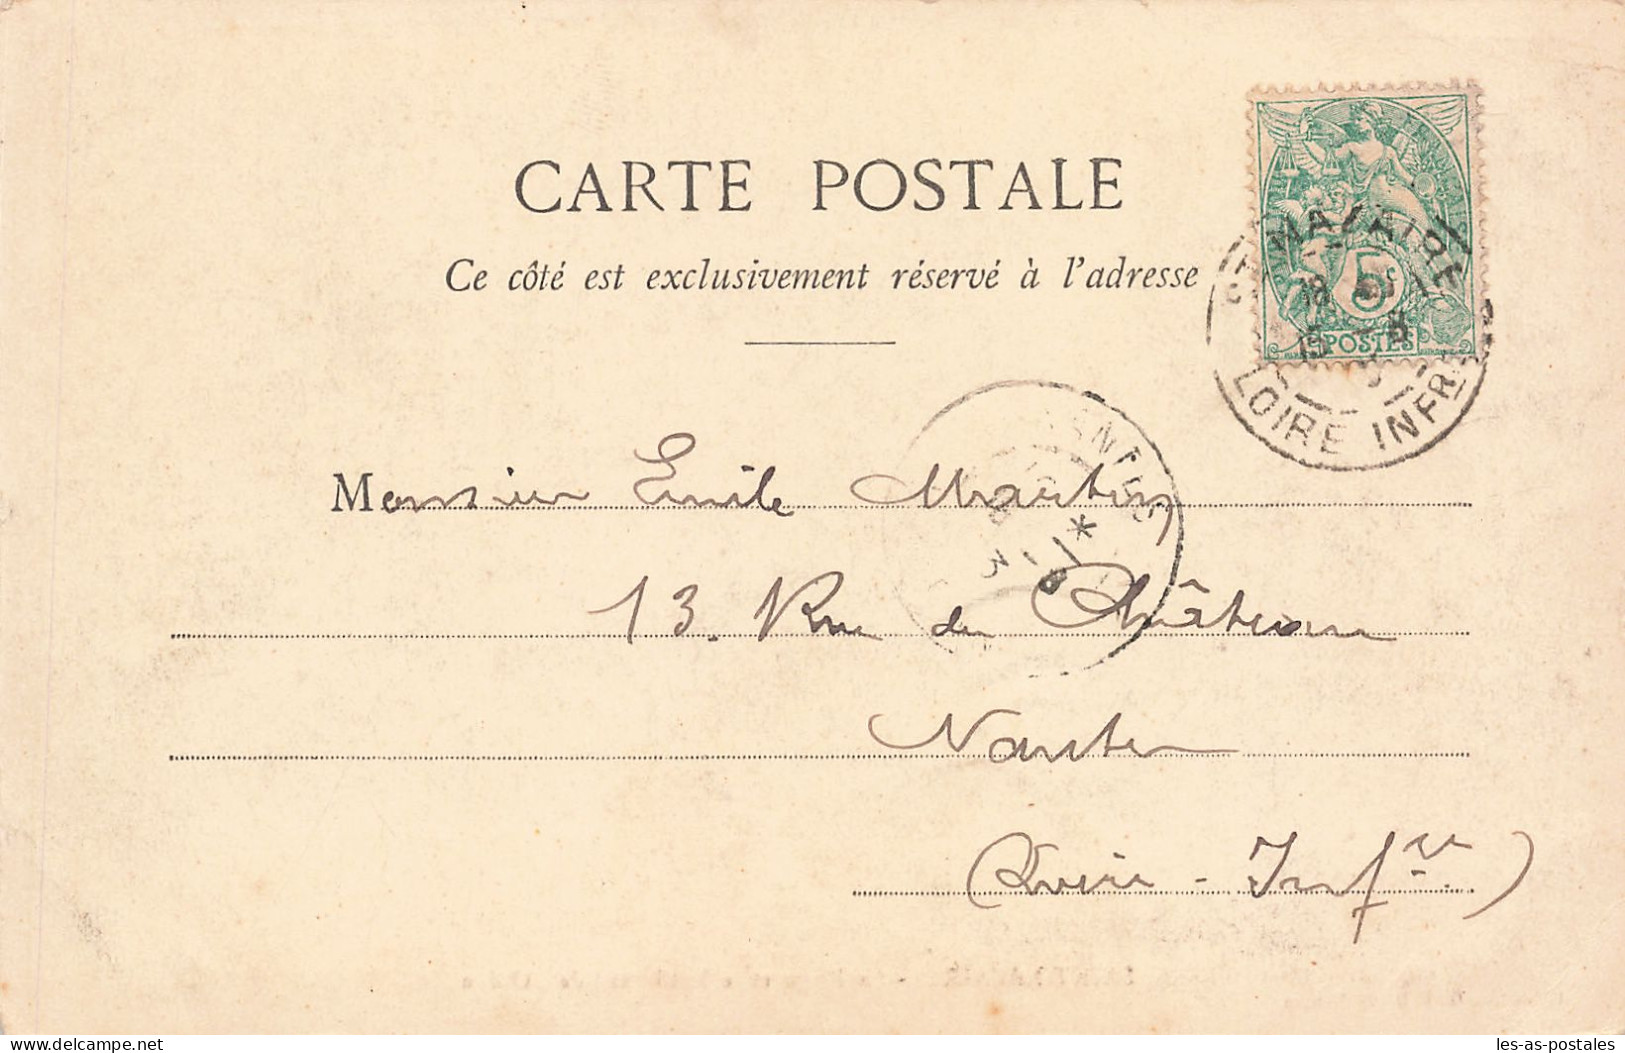 CARTE POSTALE
Ce côté est exclusivement réservé à l'adresse
5c
POSTES
LOIRE INFRE
Monsieur Emile Martin
13. Rue du Château
Nantes
(Loire-Infre)
www.delcampe.net
les-as-postales